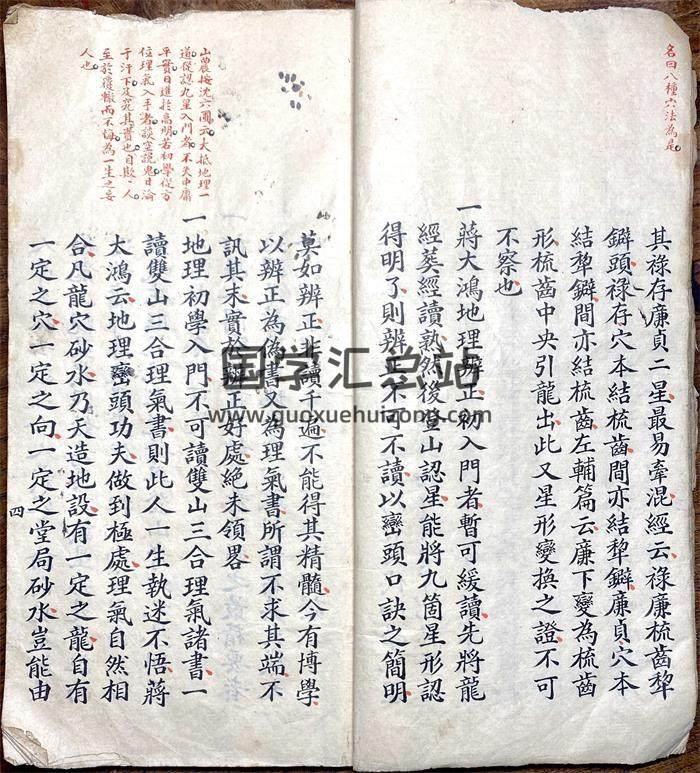 名曰八種六法為是
其祿存廉貞二星最易牽混經云祿廉梳齒犂
鐴頭祿存穴本結梳齒間亦結犂鐴廉貞穴本
結犂鐴間亦結梳齒左輔篇云廉下變為梳齒
形梳齒中央引龍出此又星形變換之證不可
不察也
一蔣大鴻地理辨正初入門者暫可緩讀先將龍
經葬經讀熟然後登山認星能將九箇星形認
得明了則辨正不可不讀以巒頭口訣之簡明
山農按沈六圃云大抵地理一
道從認九星入門者不失中庸
平實日進於高明若初學從方
位理氣入手者談空說鬼日淪
于汙下及究其實也自欺人
至於覆轍而不悔為一生之妄
人也
莫如辨正非讀千遍不能得其精髓今有博學
以辨正為偽書又為理氣書所謂不求其端不
訊其末實於辨正好處絕未領畧
一地理初學入門不可讀雙山三合理氣諸書一
讀雙山三合理氣書則此人一生執迷不悟蔣
大鴻云地理巒頭功夫做到極處理氣自然相
合凡龍穴砂水乃天造地設有一定之龍自有
一定之穴一定之向一定之堂局砂水豈能由
四
国学汇总站
www.guoxuehuizong.com